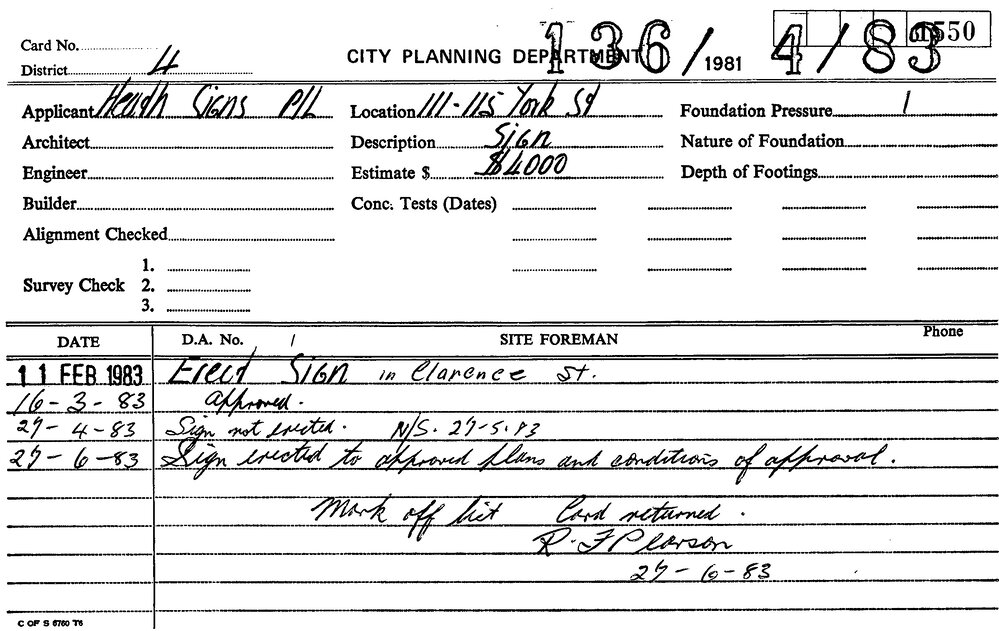 Card No.
District 4
CITY PLANNING DEPARTMENT 136/1981 4/83 550
Applicant Heath Signs P/L Location 111-115 York St Foundation Pressure /
Architect Description Sign Nature of Foundation
Engineer Estimate $ $4000 Depth of Footings
Builder Conc. Tests (Dates)
Alignment Checked
Survey Check 1.
2.
3.
DATE D.A. No. / SITE FOREMAN Phone
11 FEB 1983 Erect Sign in Clarence St.
16-3-83 approved.
27-4-83 Sign not erected. N/S. 27-5-83
27-6-83 Sign erected to approved plans and conditions of approval.
Mark off list Card returned.
R. F Pearson
27-6-83
C OF S 6760 T6